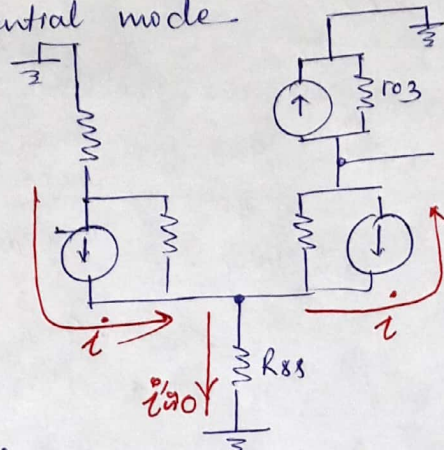 ential mode
r03
i
i
i'≈0
Rss